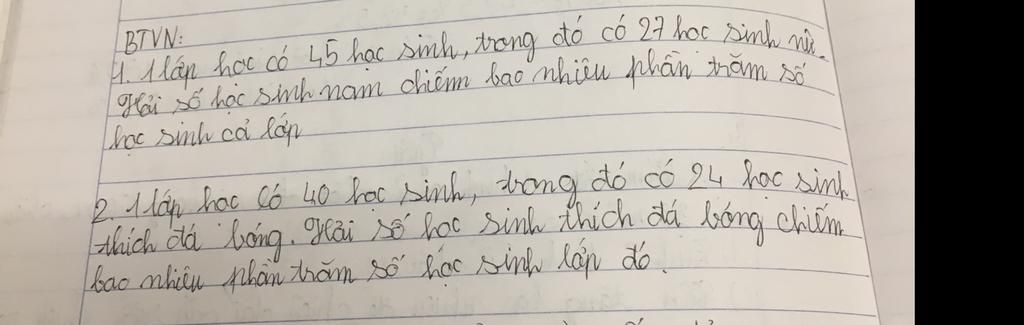 BTVN:
1. 1 lớp học có 45 học sinh, trong đó có 27 học sinh nữ.
Hỏi số học sinh nam chiếm bao nhiêu phần trăm số
học sinh cả lớp
2. 1 lớp học có 40 học sinh, trong đó có 24 học sinh
thích đá bóng. Hỏi số học sinh thích đá bóng chiếm
bao nhiêu phần trăm số học sinh lớp đó.